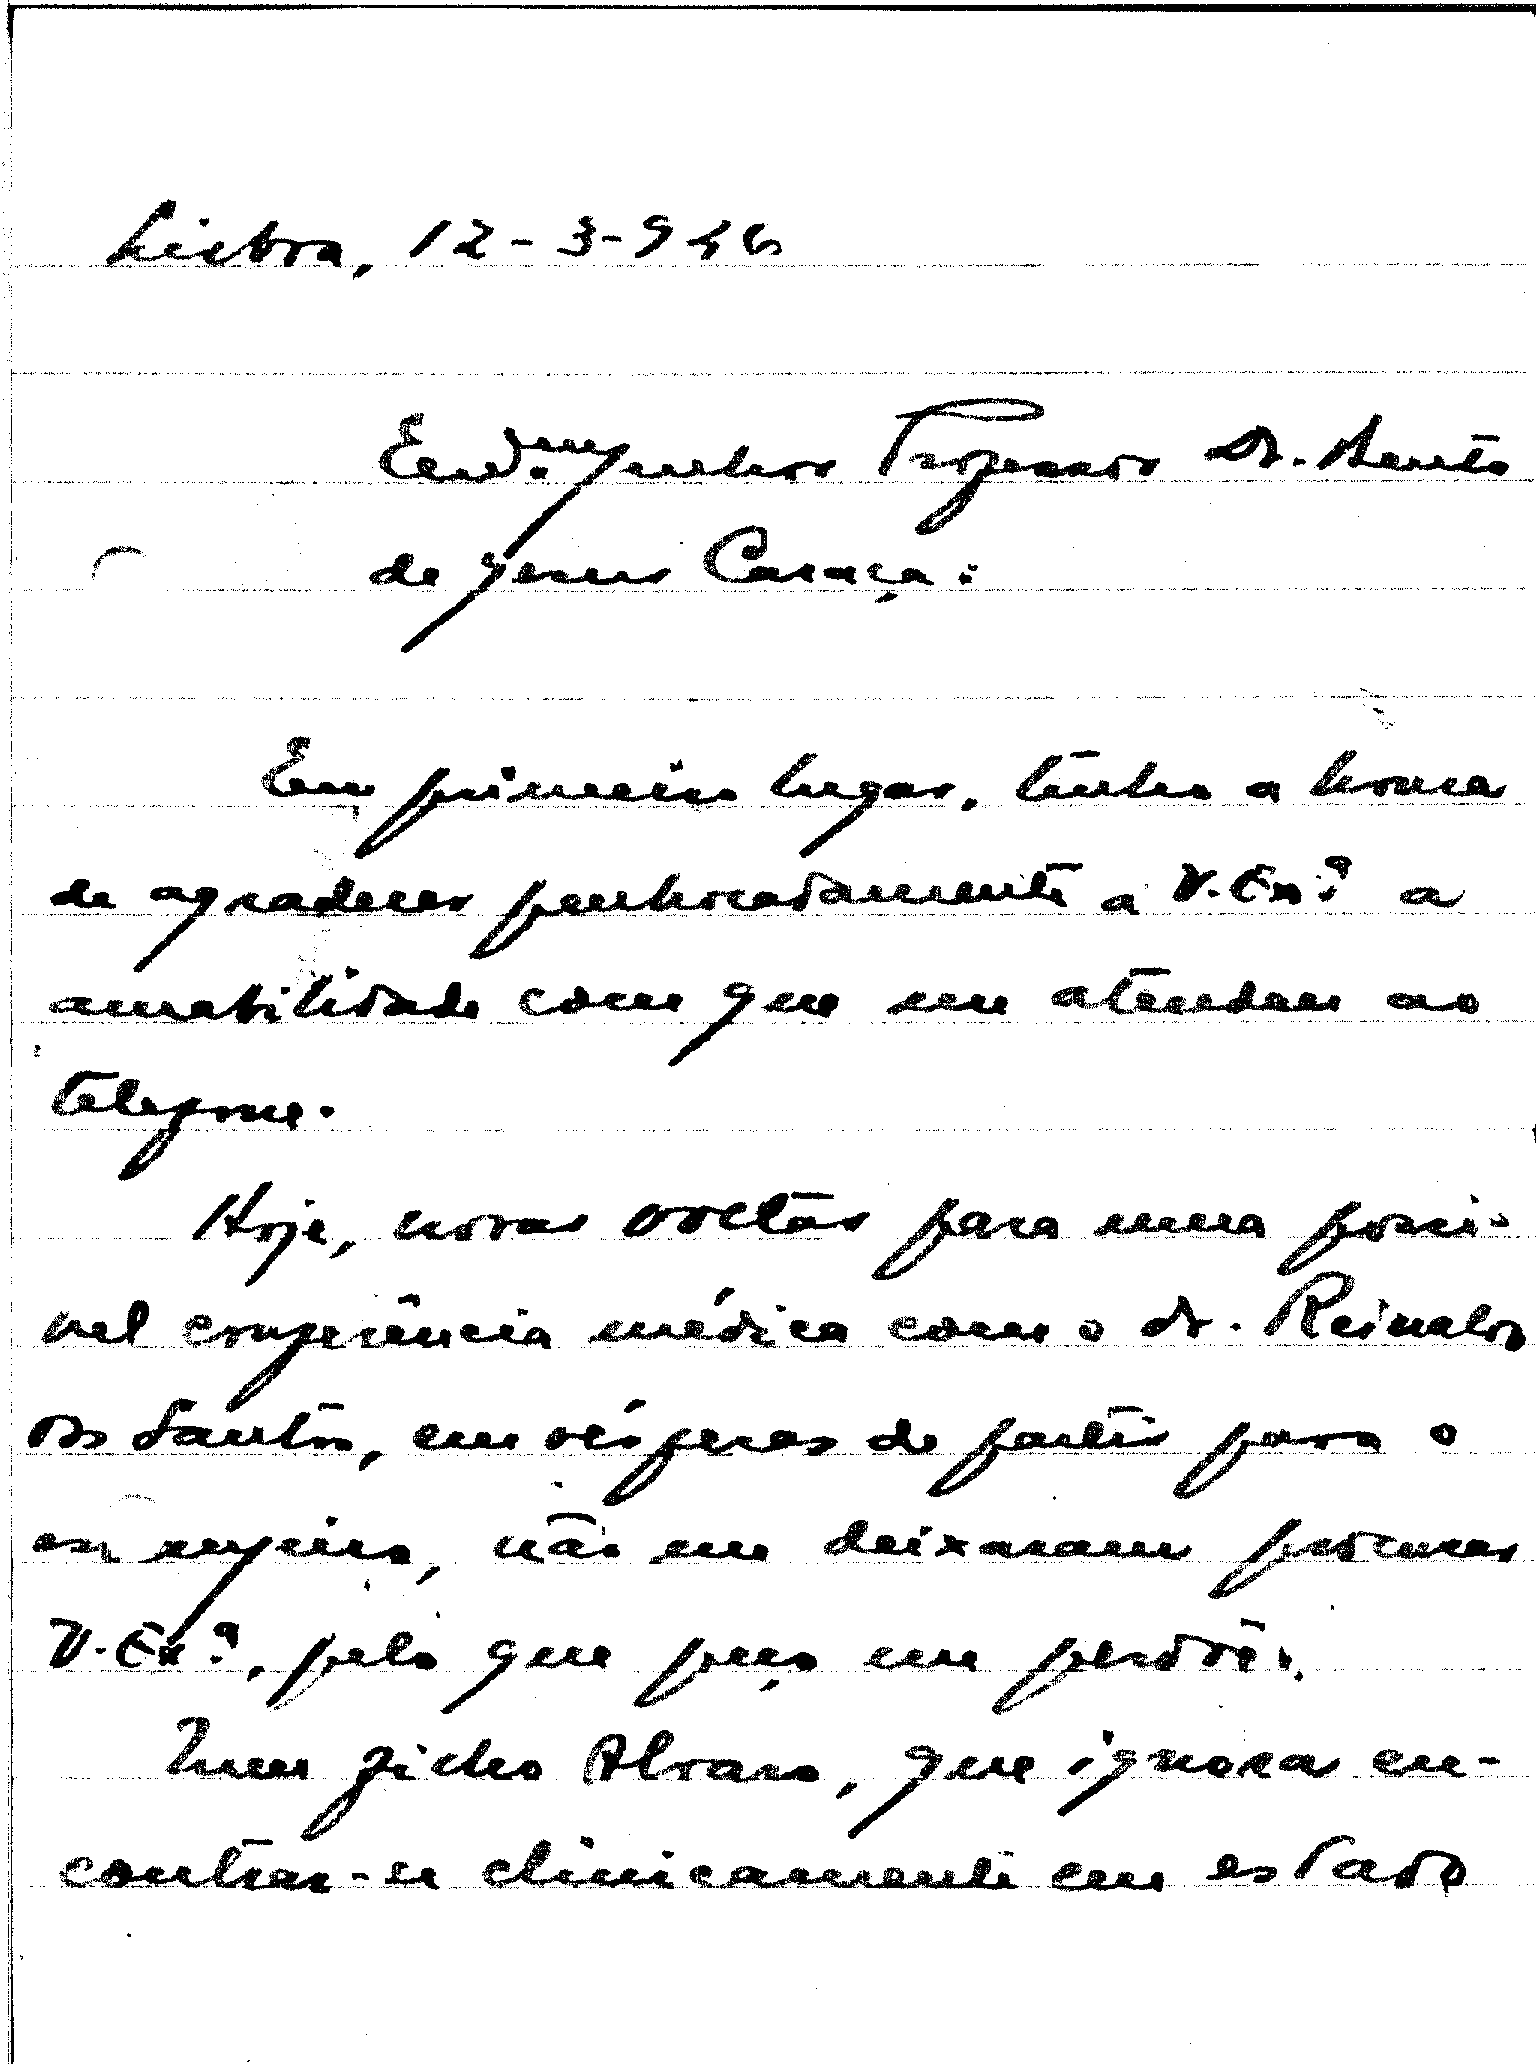 Lisboa, 12-3-946
Exmo. Senhor Professor Dr. Bento
de Jesus Caraça:
Em primeiro lugar, tenho a honra
de agradecer penhoradamente a V. Exª a
amabilidade com que me atendeu ao
telefone.
Hoje, novas voltas para uma possi-
vel conferência médica com o dr. Reinaldo
dos Santos, em vésperas de partir para o
estrangeiro, não me deixaram procurar
V. Exª, pelo que peço me perdôe.
Meu filho Alvaro, que ignora en-
contrar-se clinicamente em estado